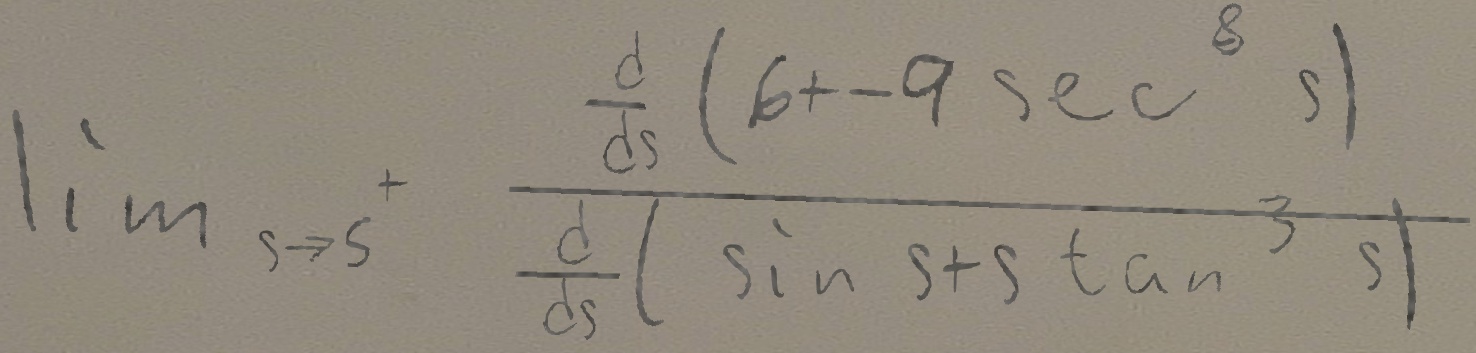 \lim_{s \to 5^+} \frac{\frac{d}{ds}(6+-9 \sec^8 s)}{\frac{d}{ds}(\sin s+s \tan^3 s)}